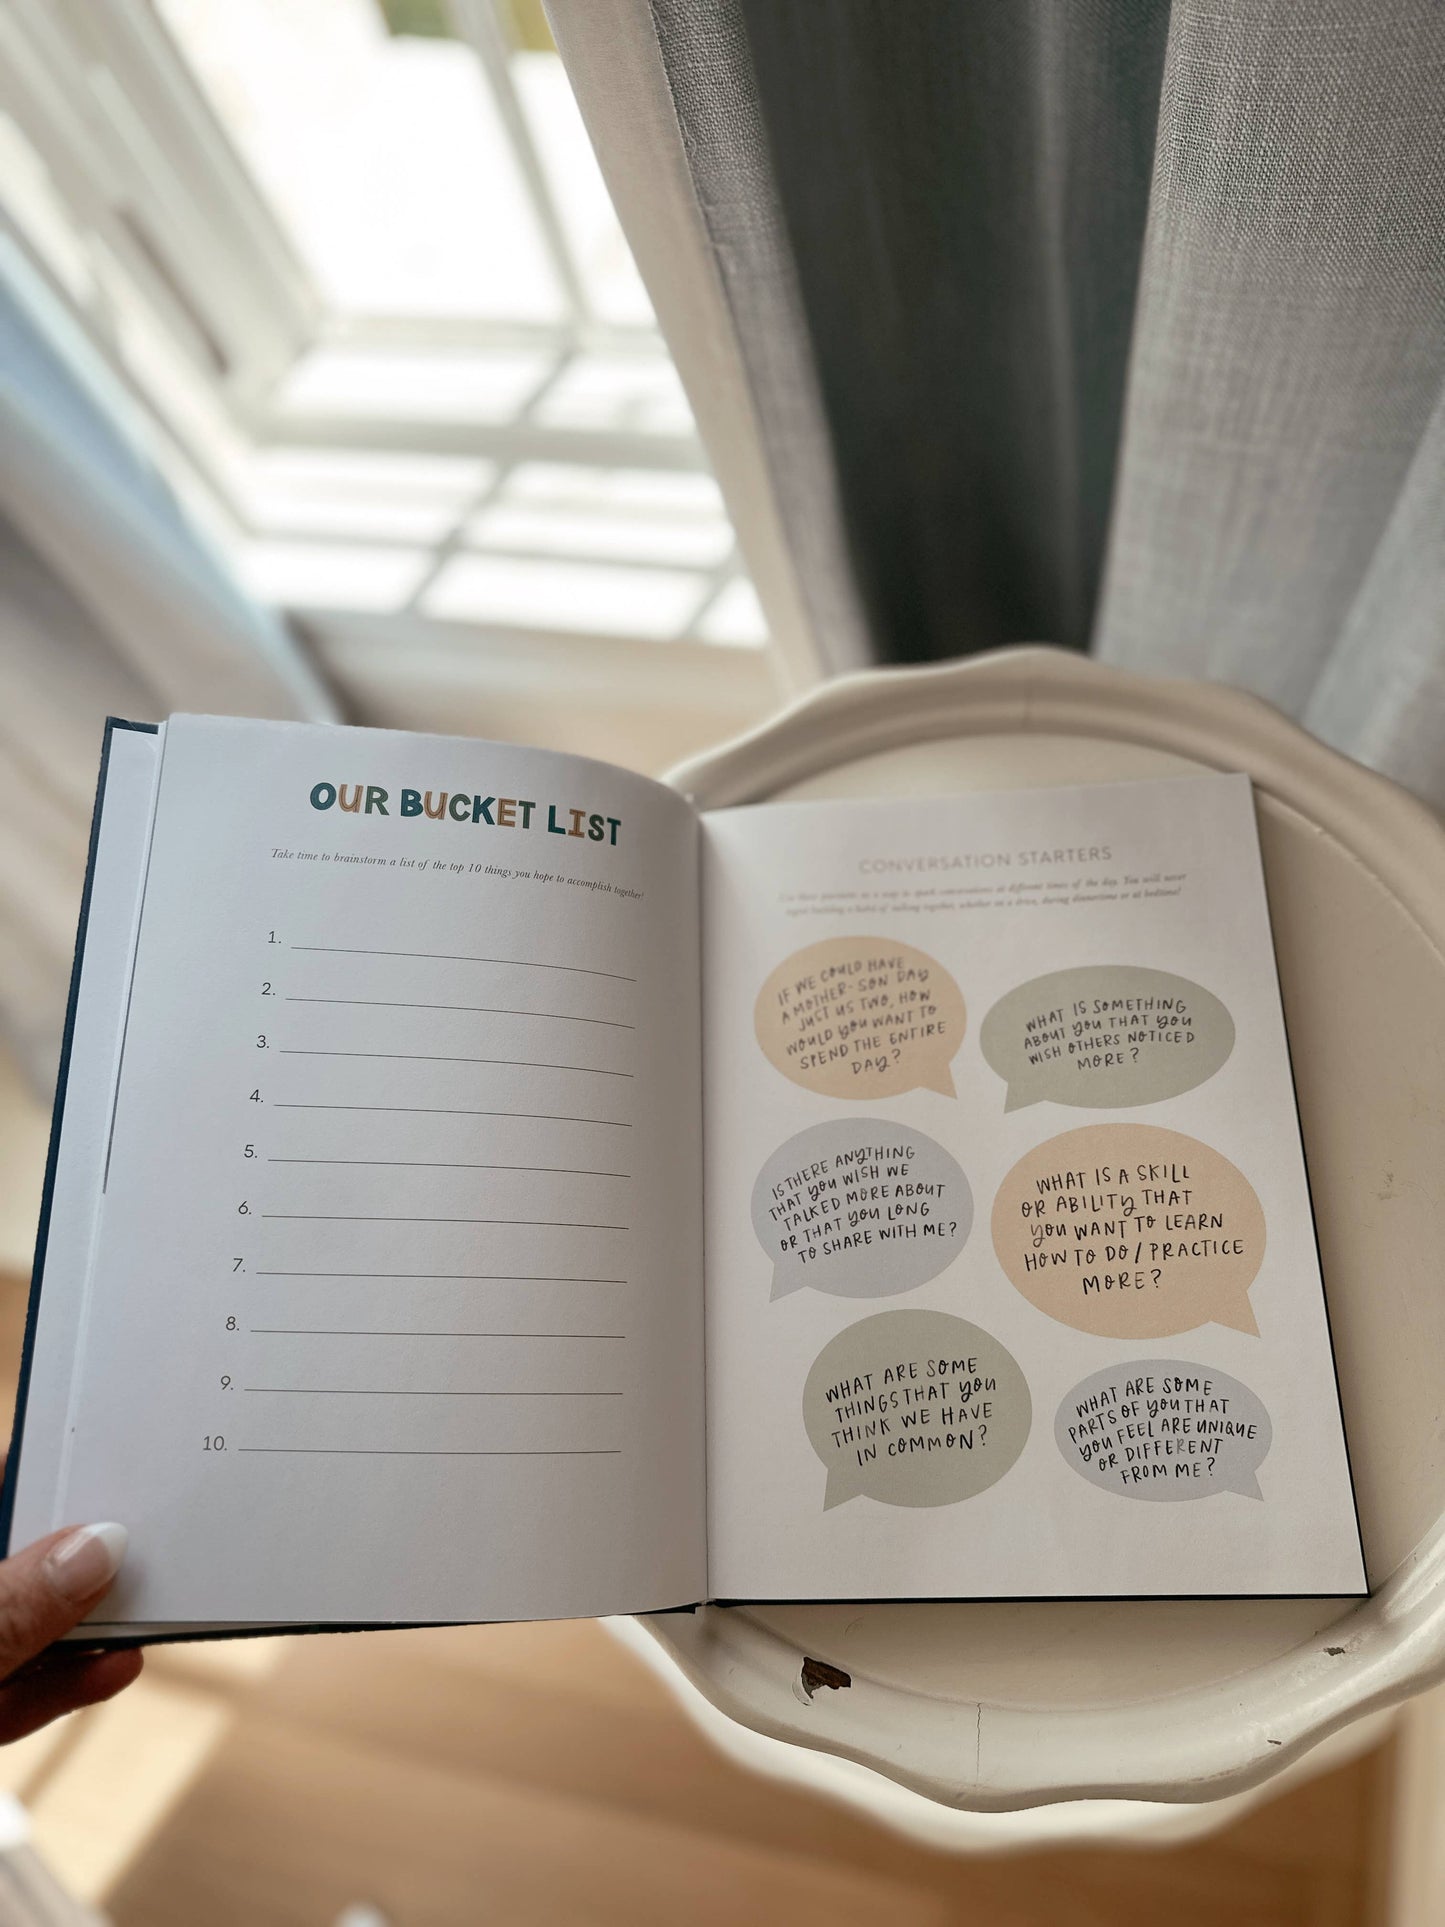 OUR BUCKET LIST
Take time to brainstorm a list of the top 10 things you hope to accomplish together!
1.
2.
3.
4.
5.
6.
7.
8.
9.
10.
CONVERSATION STARTERS
Use these questions as a way to spark conversations at different times of the day. You will never
regret building a habit of talking together, whether on a drive, during dinnertime or at bedtime!
IF WE COULD HAVE
A MOTHER-SON DAY
JUST US TWO, HOW
WOULD YOU WANT TO
SPEND THE ENTIRE
DAY?
WHAT IS SOMETHING
ABOUT YOU THAT YOU
WISH OTHERS NOTICED
MORE?
IS THERE ANYTHING
THAT YOU WISH WE
TALKED MORE ABOUT
OR THAT YOU LONG
TO SHARE WITH ME?
WHAT IS A SKILL
OR ABILITY THAT
YOU WANT TO LEARN
HOW TO DO/PRACTICE
MORE?
WHAT ARE SOME
THINGS THAT YOU
THINK WE HAVE
IN COMMON?
WHAT ARE SOME
PARTS OF YOU THAT
YOU FEEL ARE UNIQUE
OR DIFFERENT
FROM ME?